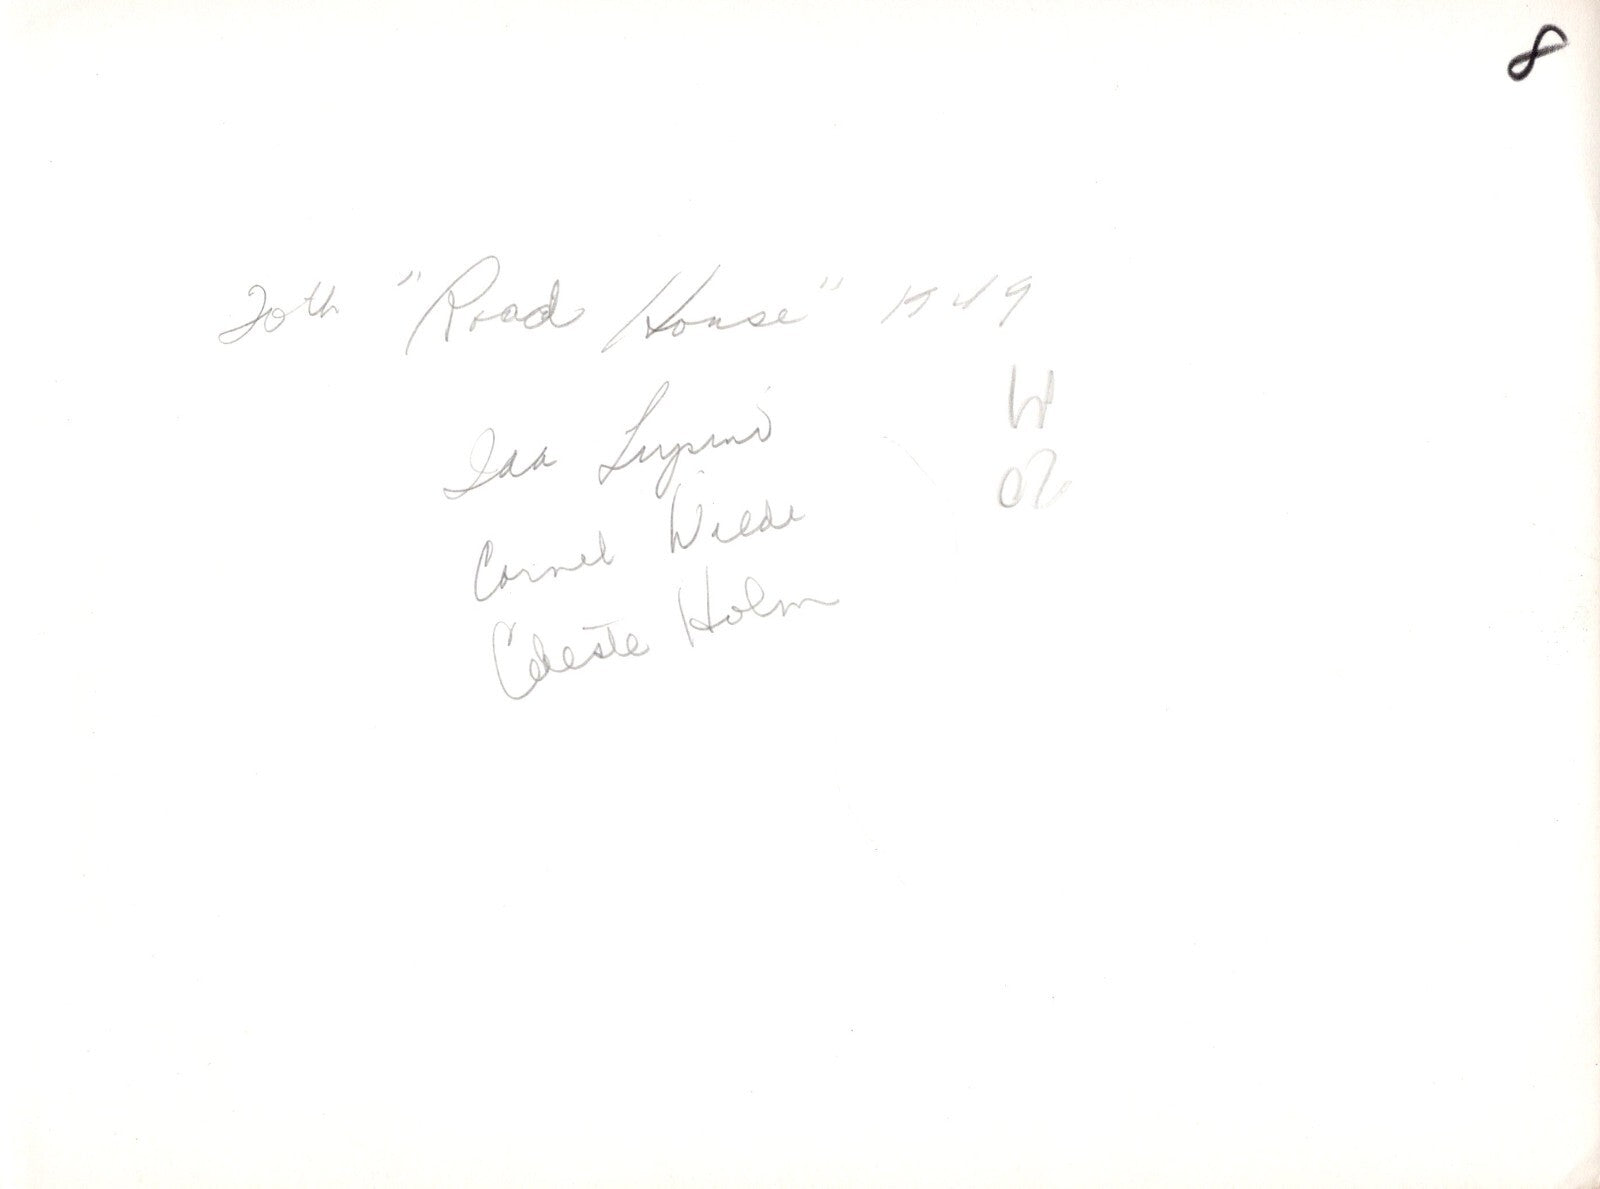 8
20th "Road House" 1949
Ida Lupino
Cornel Wilde
Celeste Holm